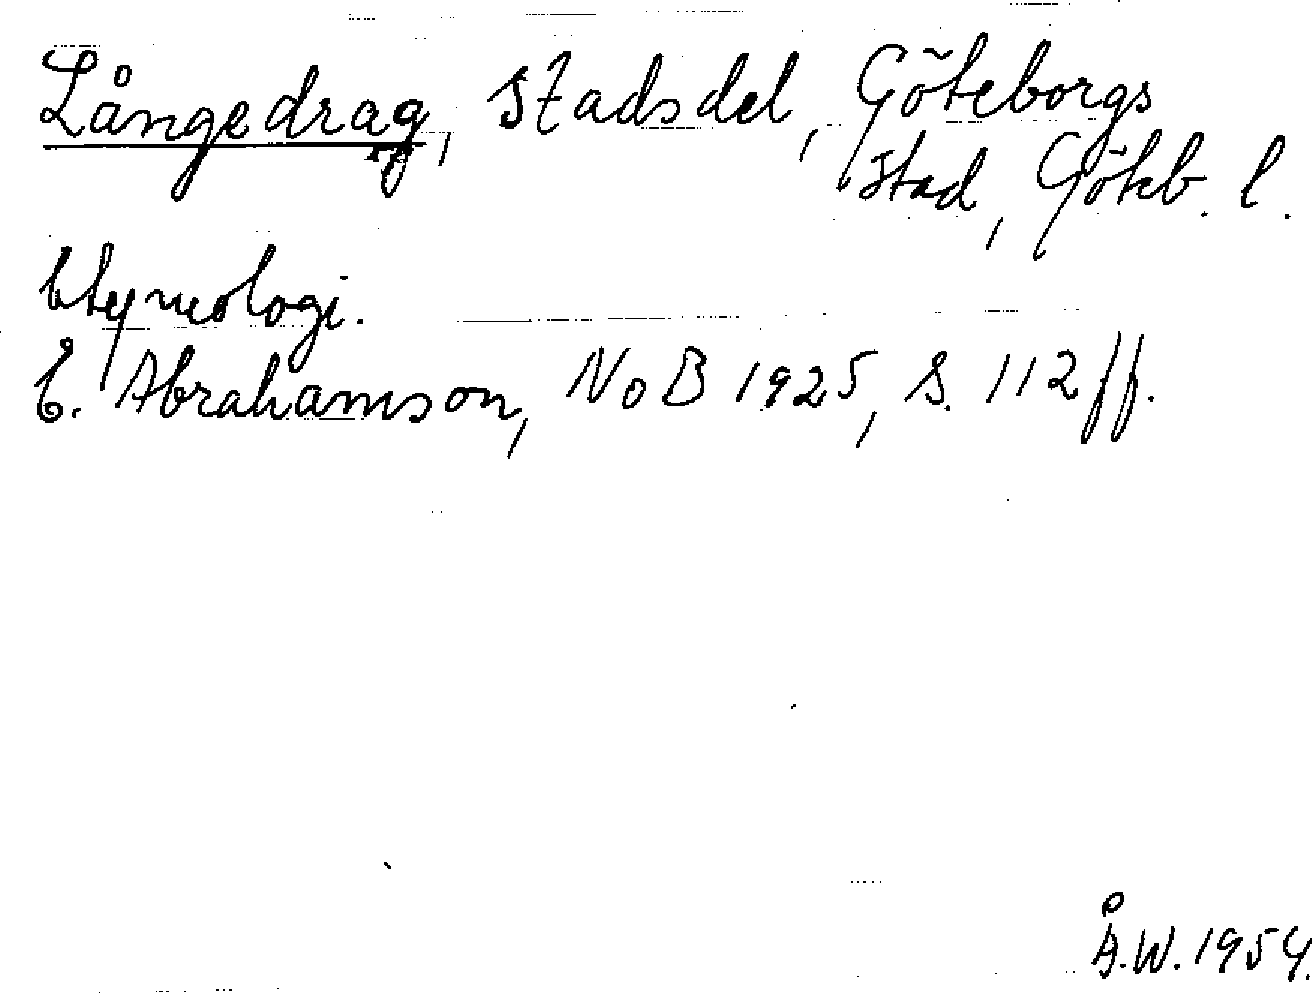 Långedrag, stadsdel, Göteborgs
stad, Göteb. l.
Etymologi.
E. Abrahamson, NoB 1925, s. 112 ff.
Å.W. 1954.